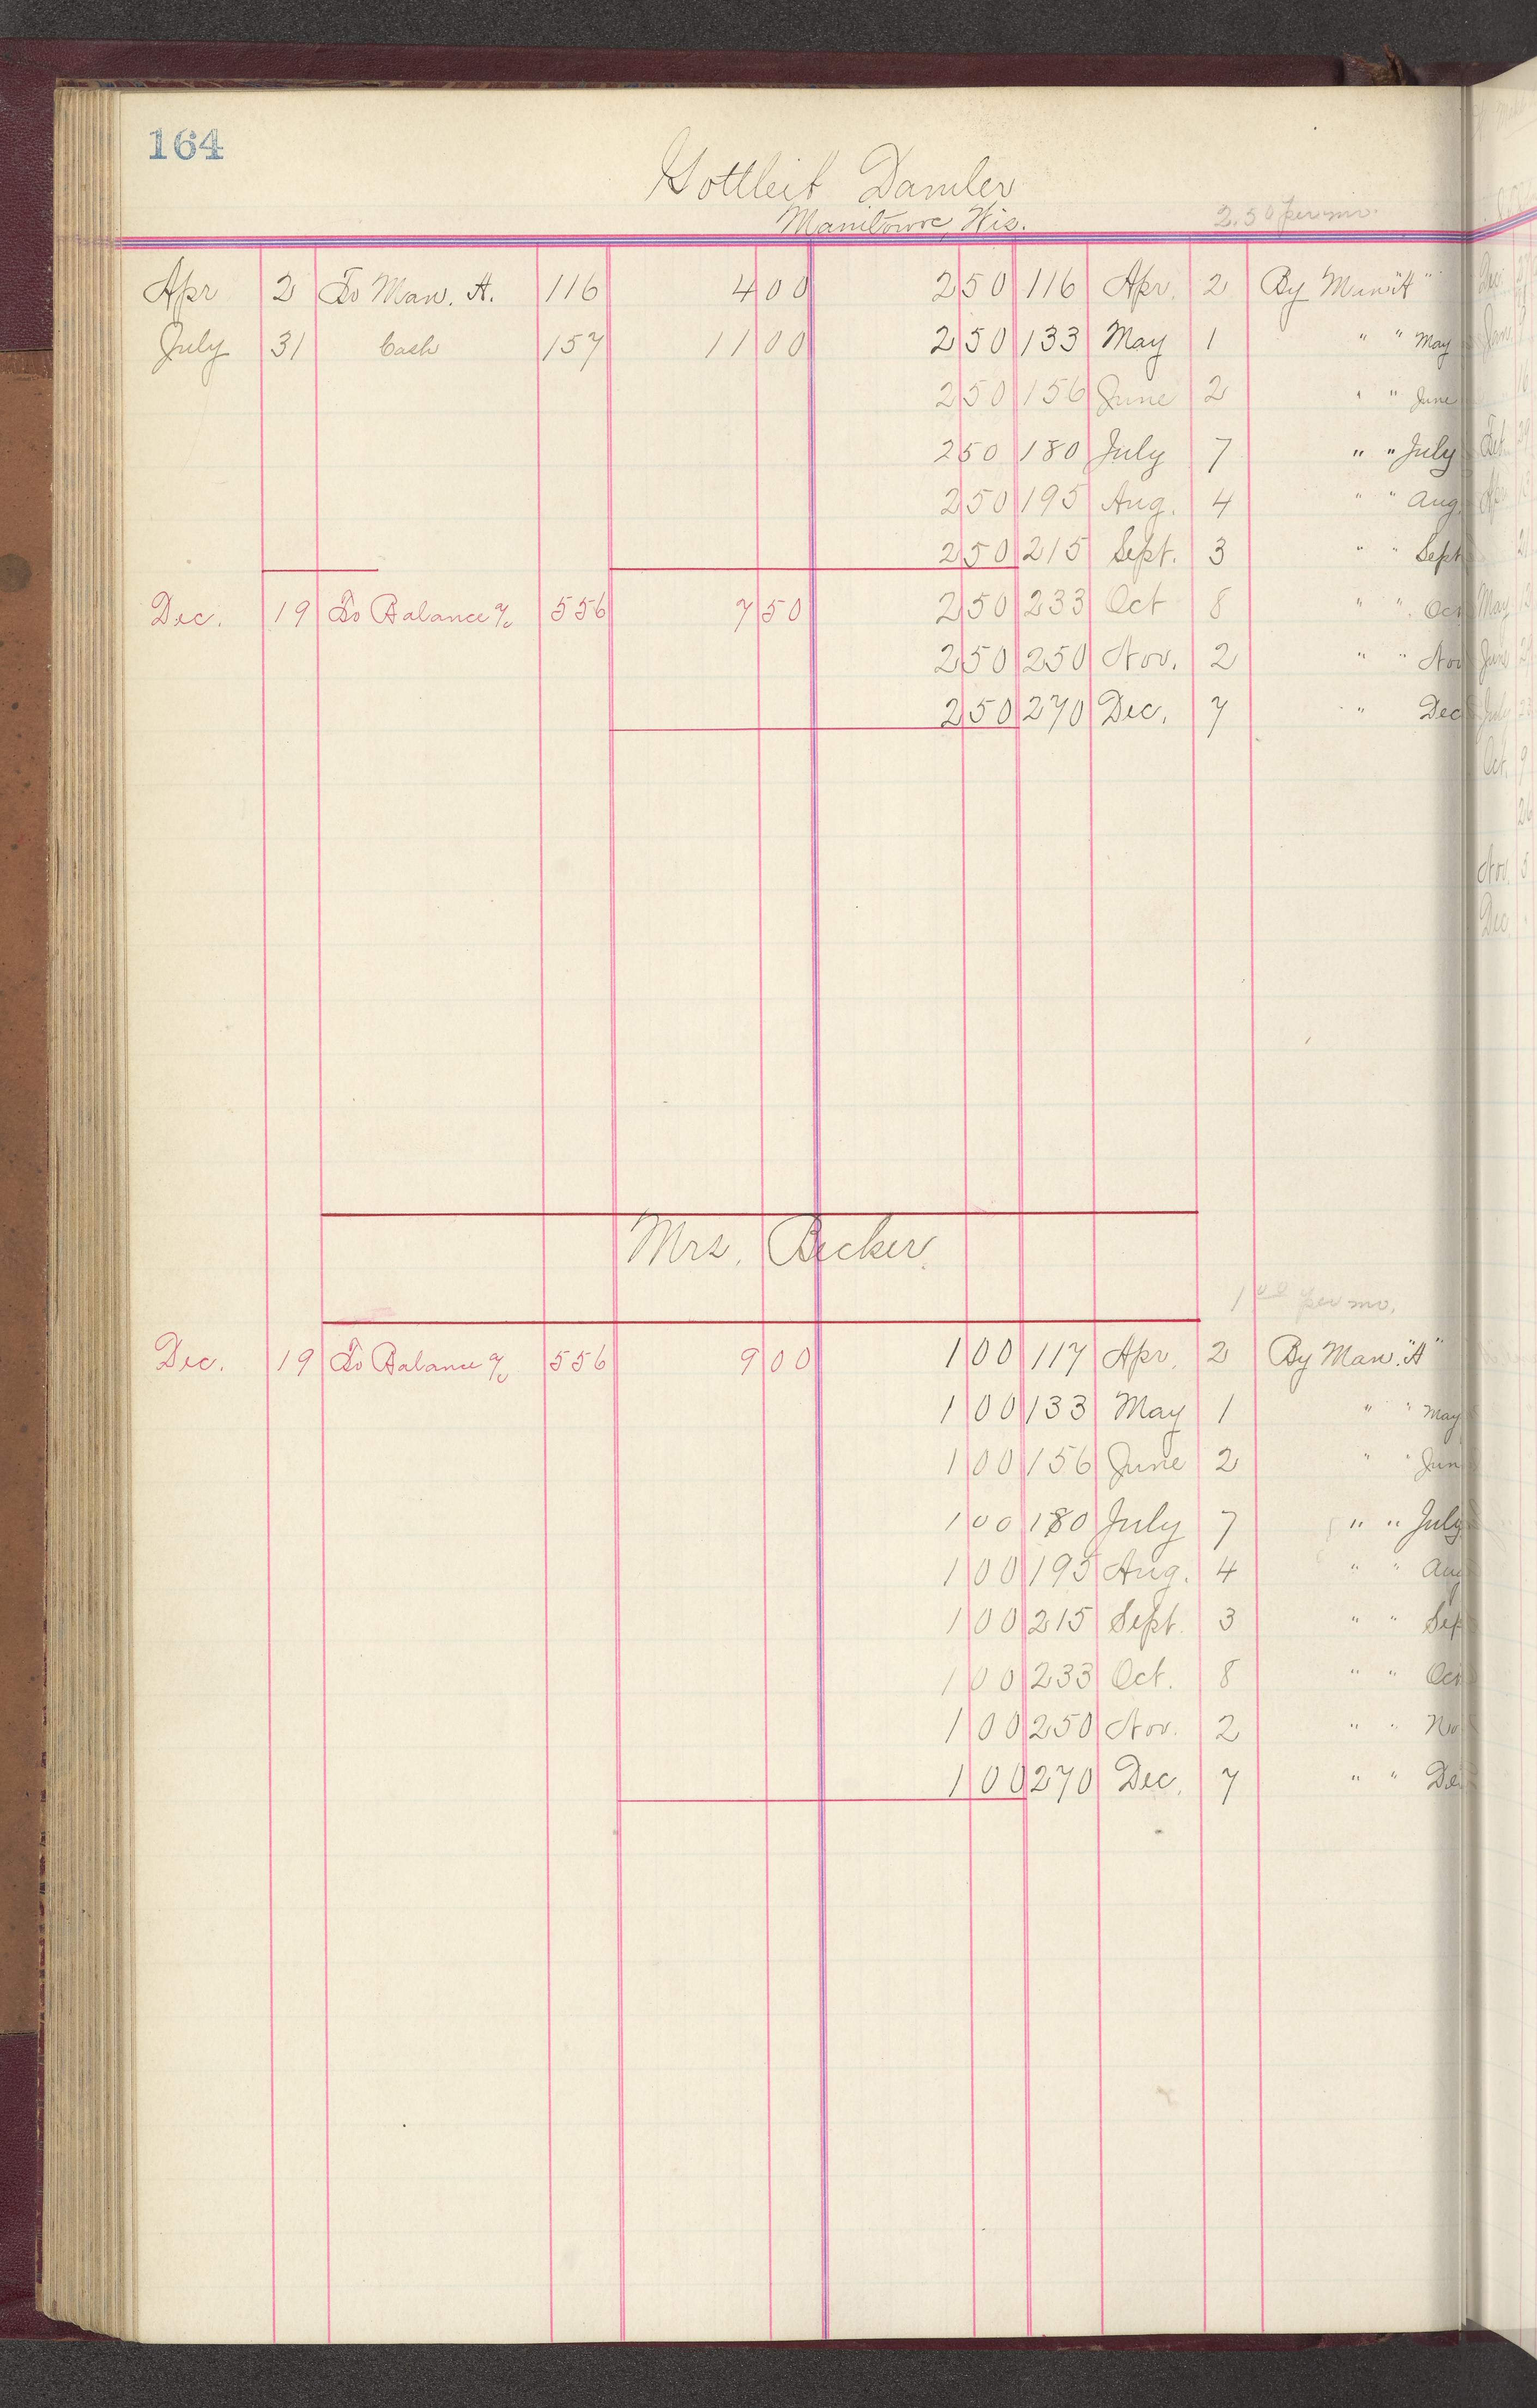 164
Gottleib Damler
Manitowoc, Wis.
2.50 per mo.
Apr 2 To Man. A. 116 4 00 2 50 116 Apr. 2 By Man "A"
July 31 Cash 157 11 00 2 50 133 May 1 " " May
2 50 156 June 2 " " June
2 50 180 July 7 " " July
2 50 195 Aug. 4 " " Aug.
2 50 215 Sept. 3 " " Sept
Dec. 19 To Balance % 556 7 50 2 50 233 Oct 8 " " Oct
2 50 250 Nov. 2 " " Nov
2 50 270 Dec. 7 " Dec
Mrs. Becker.
1 00 per mo.
Dec. 19 To Balance % 556 9 00 1 00 117 Apr. 2 By Man. "A"
1 00 133 May 1 " " May
1 00 156 June 2 " " Jun
1 00 180 July 7 " " July
1 00 195 Aug. 4 " " Aug
1 00 215 Sept. 3 " " Sep
1 00 233 Oct. 8 " " Oct
1 00 250 Nov. 2 " " No
1 00 270 Dec. 7 " " De